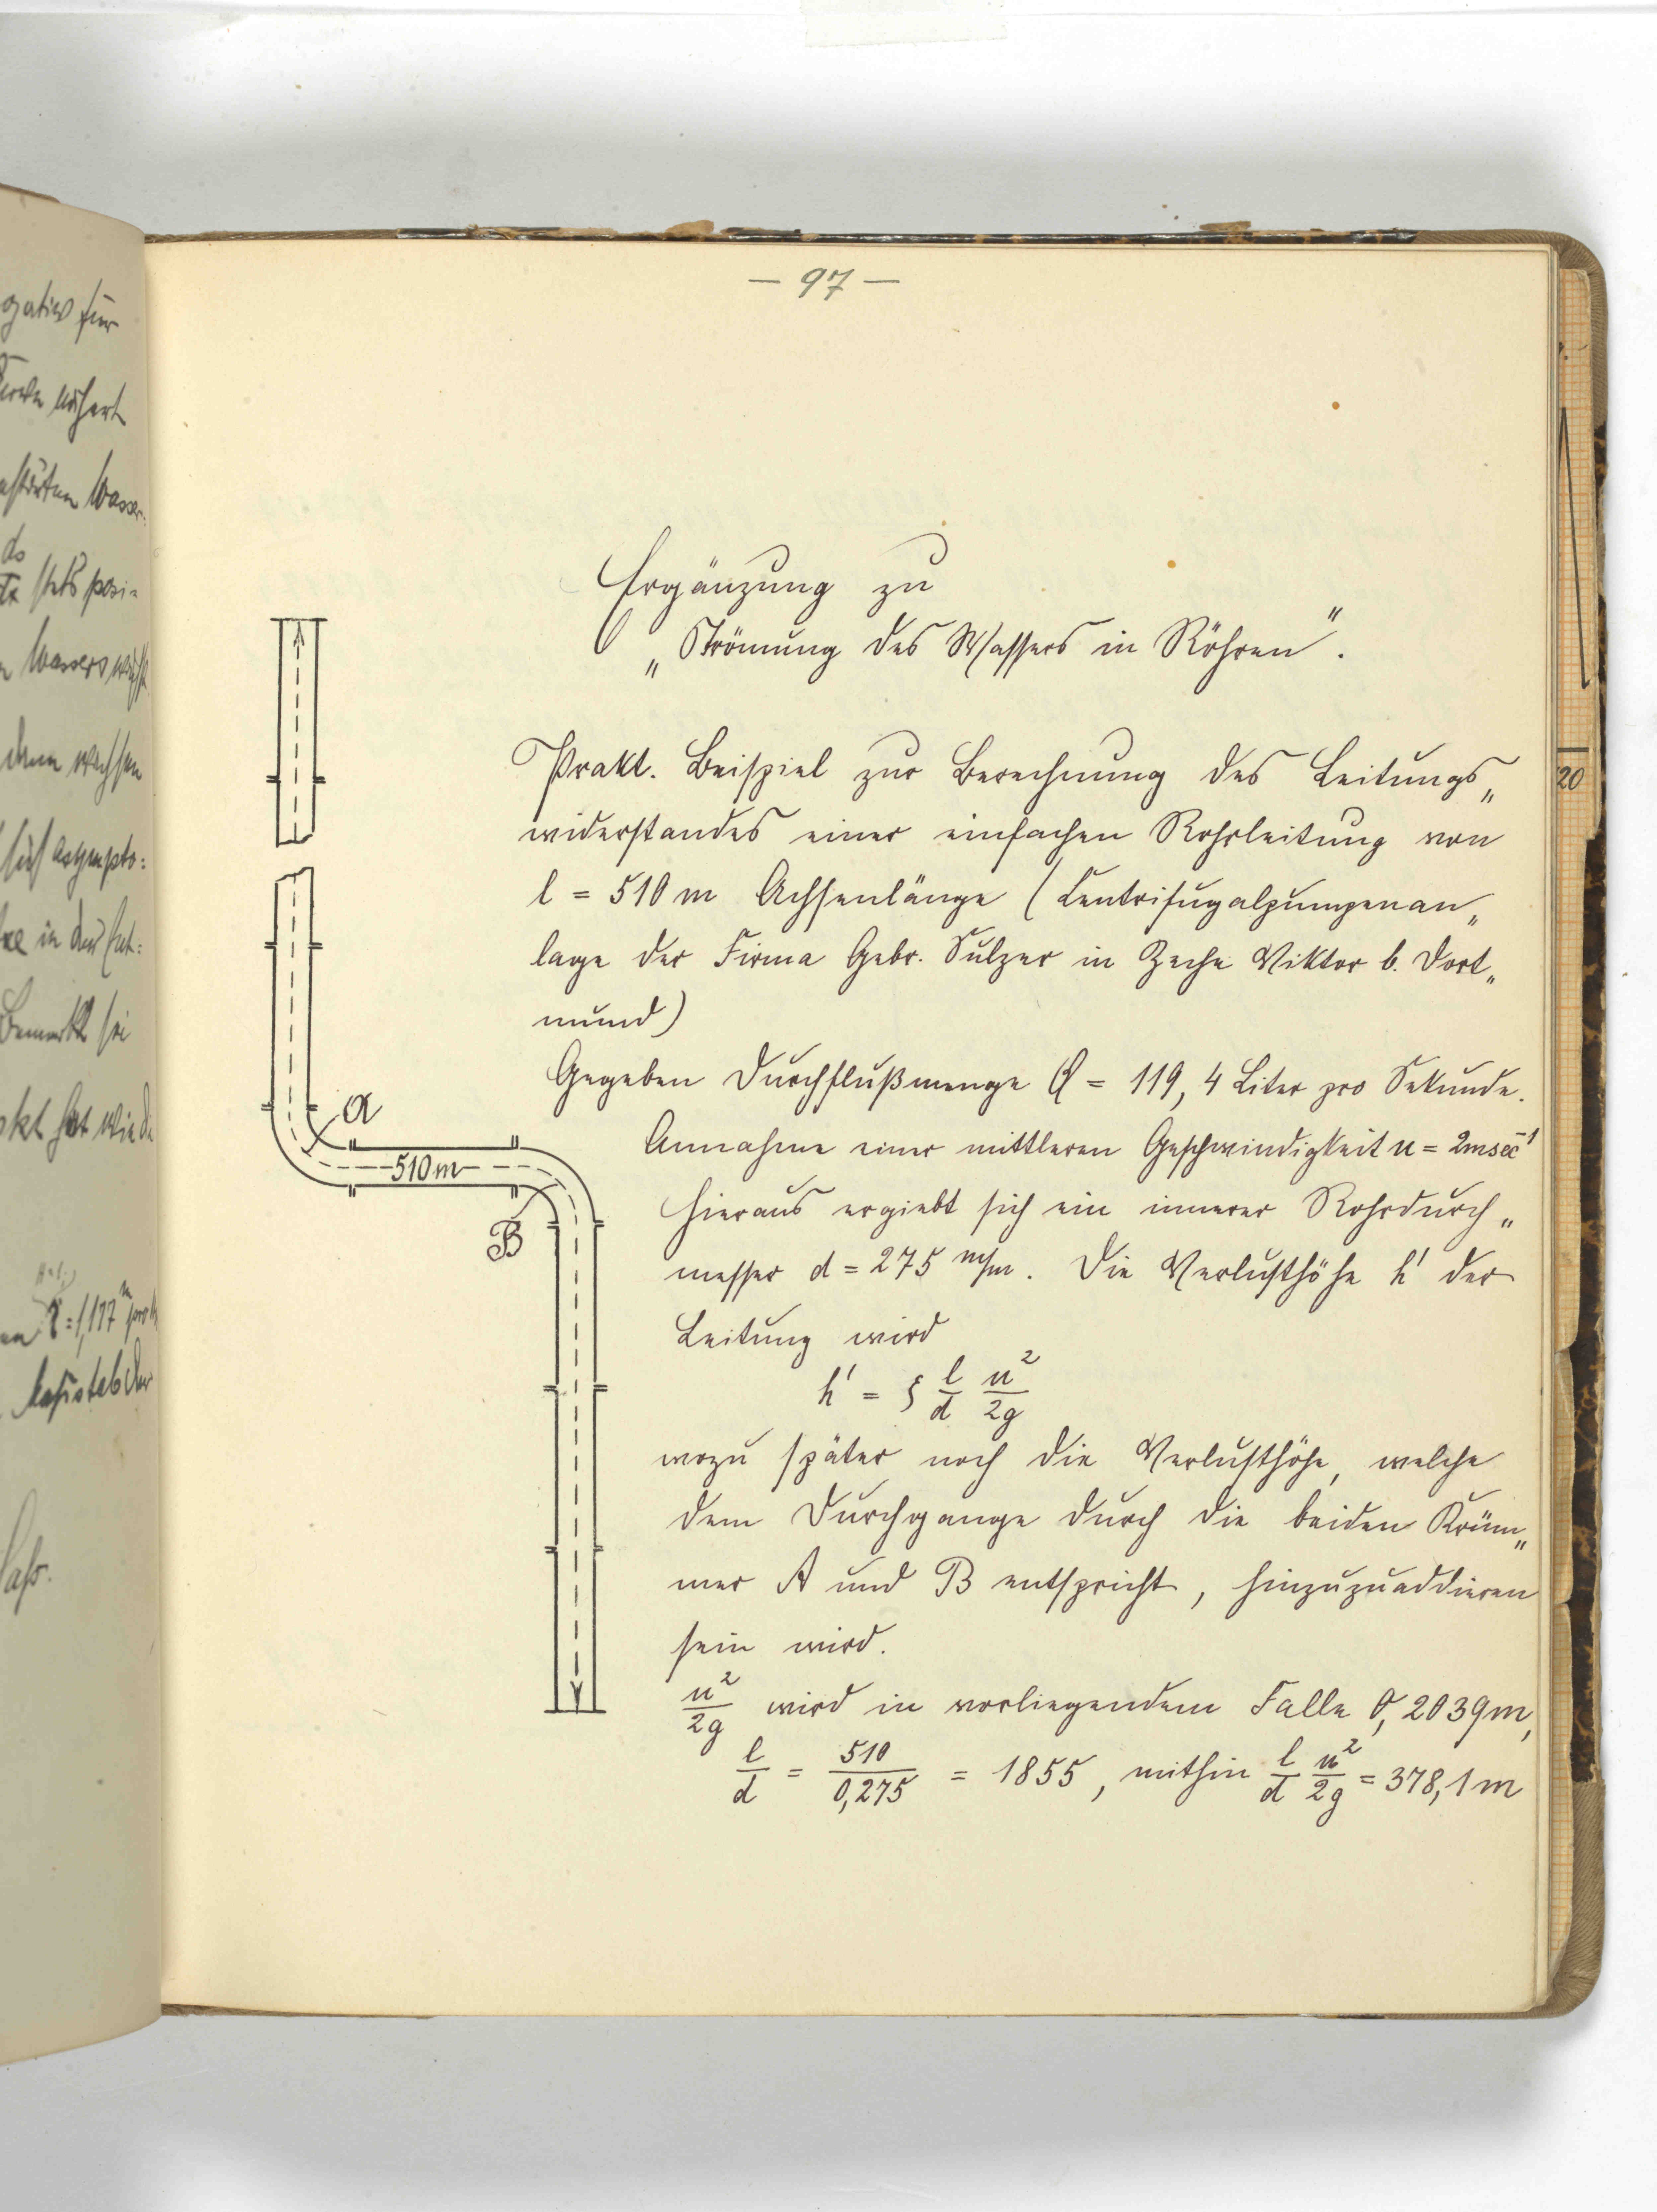 — 97 —
Ergänzung zu
„Strömung des Wassers in Röhren".
Prakt. Beispiel zur Berechnung des Leitungs„
widerstandes einer einfachen Rohrleitung von
l = 510 m Achsenlänge (Centrifugalpumpenan„
lage der Firma Gebr. Sulzer in Zeche Viktor b. Dort„
mund)
Gegeben Durchflußmenge Q = 119,4 Liter pro Sekunde.
Annahme einer mittleren Geschwindigkeit u = 2 m sec⁻¹
Hieraus ergiebt sich ein innerer Rohrdurch„
messer d = 275 m/m. Die Verlusthöhe h' der
Leitung wird
h' = ξ l/d u²/2g
wozu später noch die Verlusthöhe, welche
dem Durchgange durch die beiden Krüm„
mer A und B entspricht, hinzuzuaddieren
sein wird.
u²/2g wird in vorliegendem Falle 0,2039 m,
l/d = 510/0,275 = 1855, mithin l/d u²/2g = 378,1 m
A
510 m
B
für
nähert
Wasser:
ds
stets posi=
Wassers wächst
wachsen
asympto:
in der
Bemerkt sei
hat
= 1,177
20